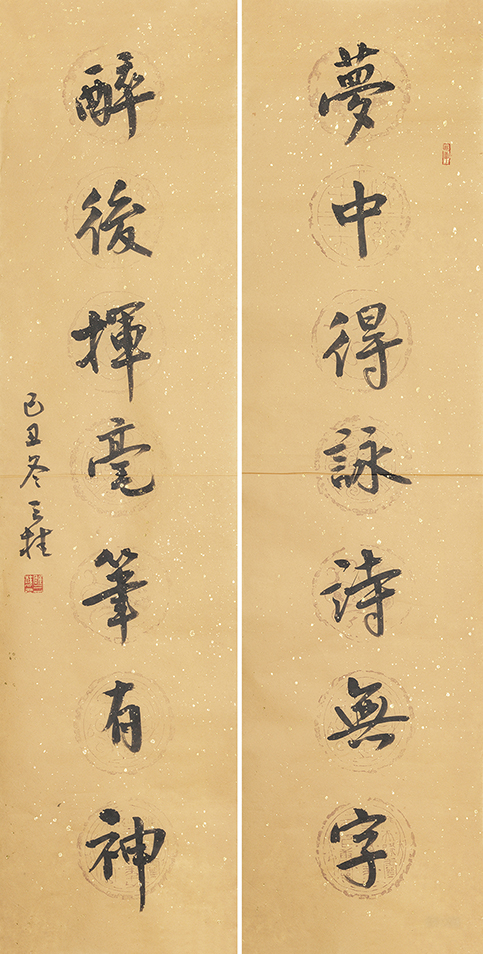 夢中得詠詩無字
醉後揮毫筆有神
己丑冬三桂